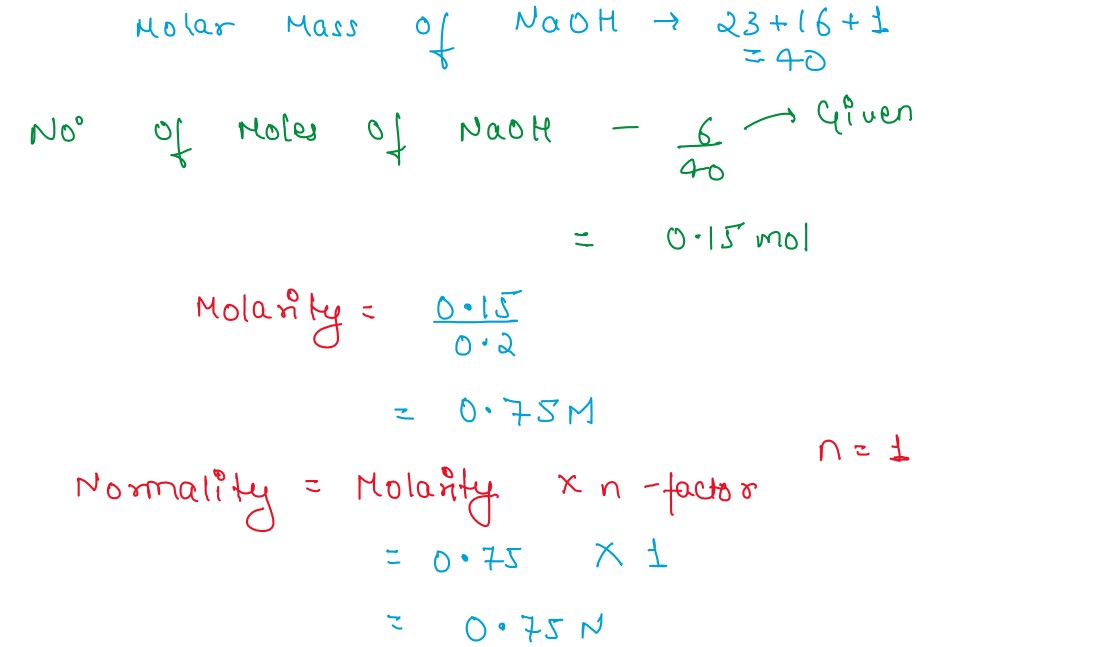 Molar Mass of NaOH → 23+16+1
= 40
No° of Moles of NaOH - 6/40 → Given
= 0.15 mol
Molarity = 0.15/0.2
= 0.75M
n = 1
Normality = Molarity x n-factor
= 0.75 x 1
= 0.75 N